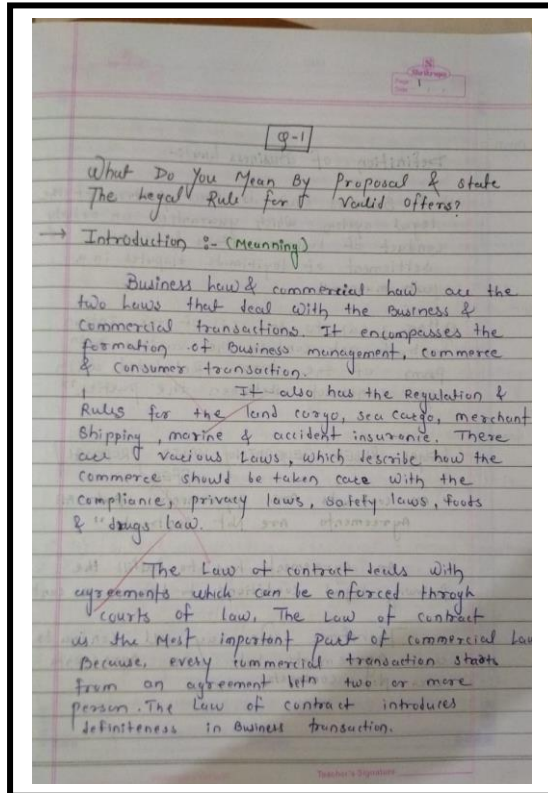 Page: 1
Date:
Q-1
What Do You Mean By Proposal & state
The Legal Rule for Valid Offers?
→ Introduction :- (Meanning)
Business Law & commercial Law are the
two Laws that deal with the Business &
Commercial transactions. It encompasses the
formation of Business management, commerce
& consumer transaction.
It also has the Regulation &
Rules for the land cargo, sea cargo, merchant
Shipping, marine & accident insurance. There
are various Laws, which describe how the
commerce should be taken care with the
compliance, privacy laws, safety laws, foods
& "drugs Law.
The Law of contract deals with
agreements which can be enforced throgh
courts of law, The Law of contract
is the Most important part of commercial Law
Because, every commercial transaction starts
from an agreement betn two or more
person. The Law of contract introduces
definiteness in Business transaction.
Teacher's Signature